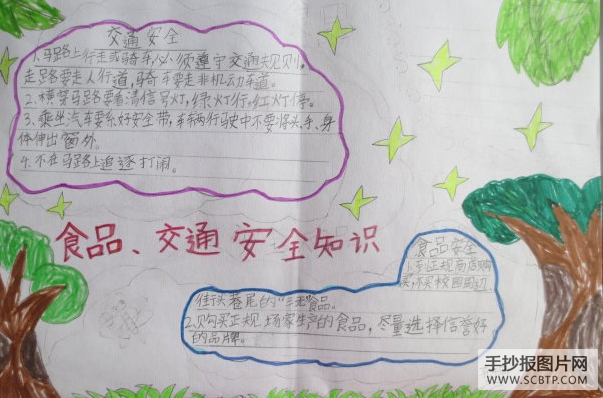 交通安全
1.马路上行走或骑车必须遵守交通规则。
走路要走人行道,骑车要走非机动车道。
2.横穿马路要看清信号灯,绿灯行,红灯停。
3.乘坐汽车要系好安全带,车辆行驶中不要将头、手、身
体伸出窗外。
4.不在马路上追逐打闹。
食品、交通安全知识
食品安全
1.到正规商店购
买,不买校园周边
街头巷尾的"三无"食品。
2.购买正规场家生产的食品,尽量选择信誉好
的品牌。
手抄报图片网
WWW.SCBTP.COM